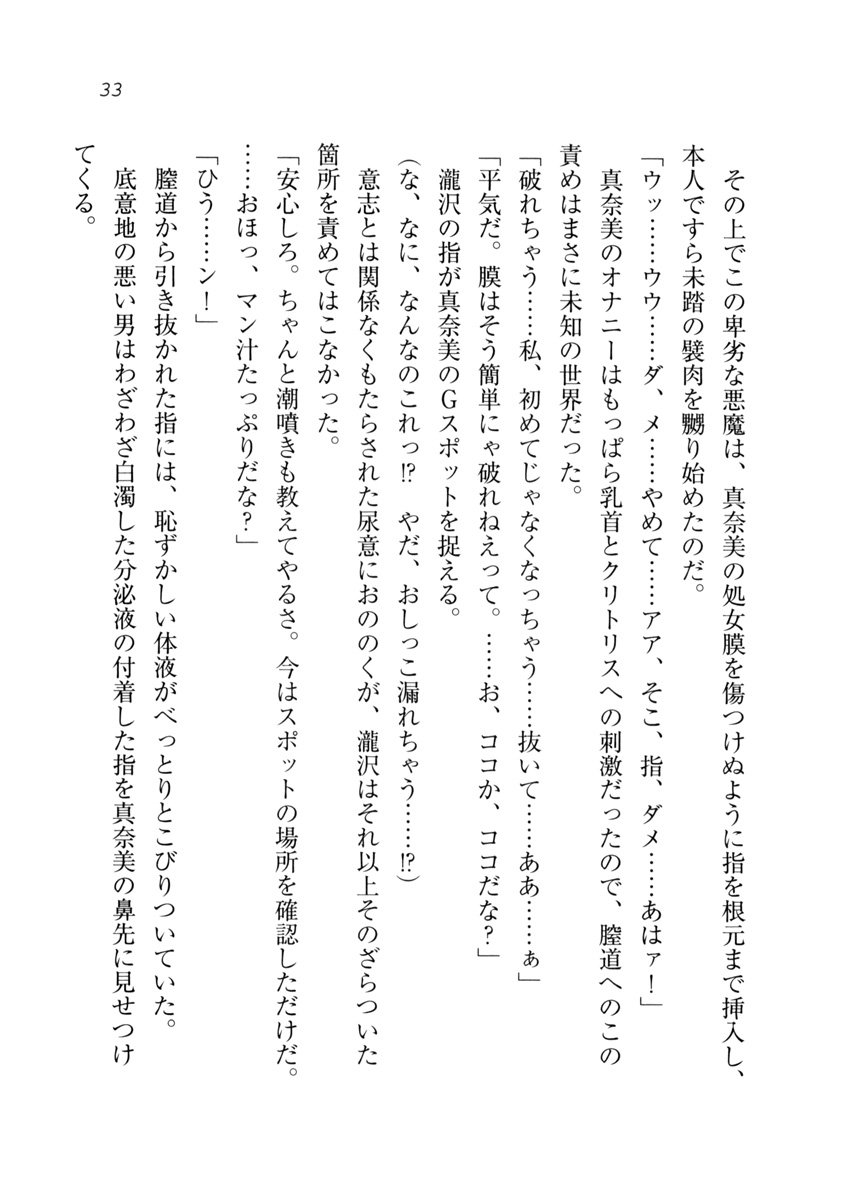 33
その上でこの卑劣な悪魔は、真奈美の処女膜を傷つけぬように指を根元まで挿入し、
本人ですら未踏の襞肉を嬲り始めたのだ。
「ウッ……ウウ……ダ、メ……やめて……アア、そこ、指、ダメ……あはァ！」
真奈美のオナニーはもっぱら乳首とクリトリスへの刺激だったので、膣道へのこの
責めはまさに未知の世界だった。
「破れちゃう……私、初めてじゃなくなっちゃう……抜いて……ああ……ぁ」
「平気だ。膜はそう簡単にゃ破れねえって。……お、ココか、ココだな？」
瀧沢の指が真奈美のＧスポットを捉える。
（な、なに、なんなのこれっ!?　やだ、おしっこ漏れちゃう……!?）
意志とは関係なくもたらされた尿意におののくが、瀧沢はそれ以上そのざらついた
箇所を責めてはこなかった。
「安心しろ。ちゃんと潮噴きも教えてやるさ。今はスポットの場所を確認しただけだ。
……おほっ、マン汁たっぷりだな？」
「ひう……ン！」
膣道から引き抜かれた指には、恥ずかしい体液がべっとりとこびりついていた。
底意地の悪い男はわざわざ白濁した分泌液の付着した指を真奈美の鼻先に見せつけ
てくる。